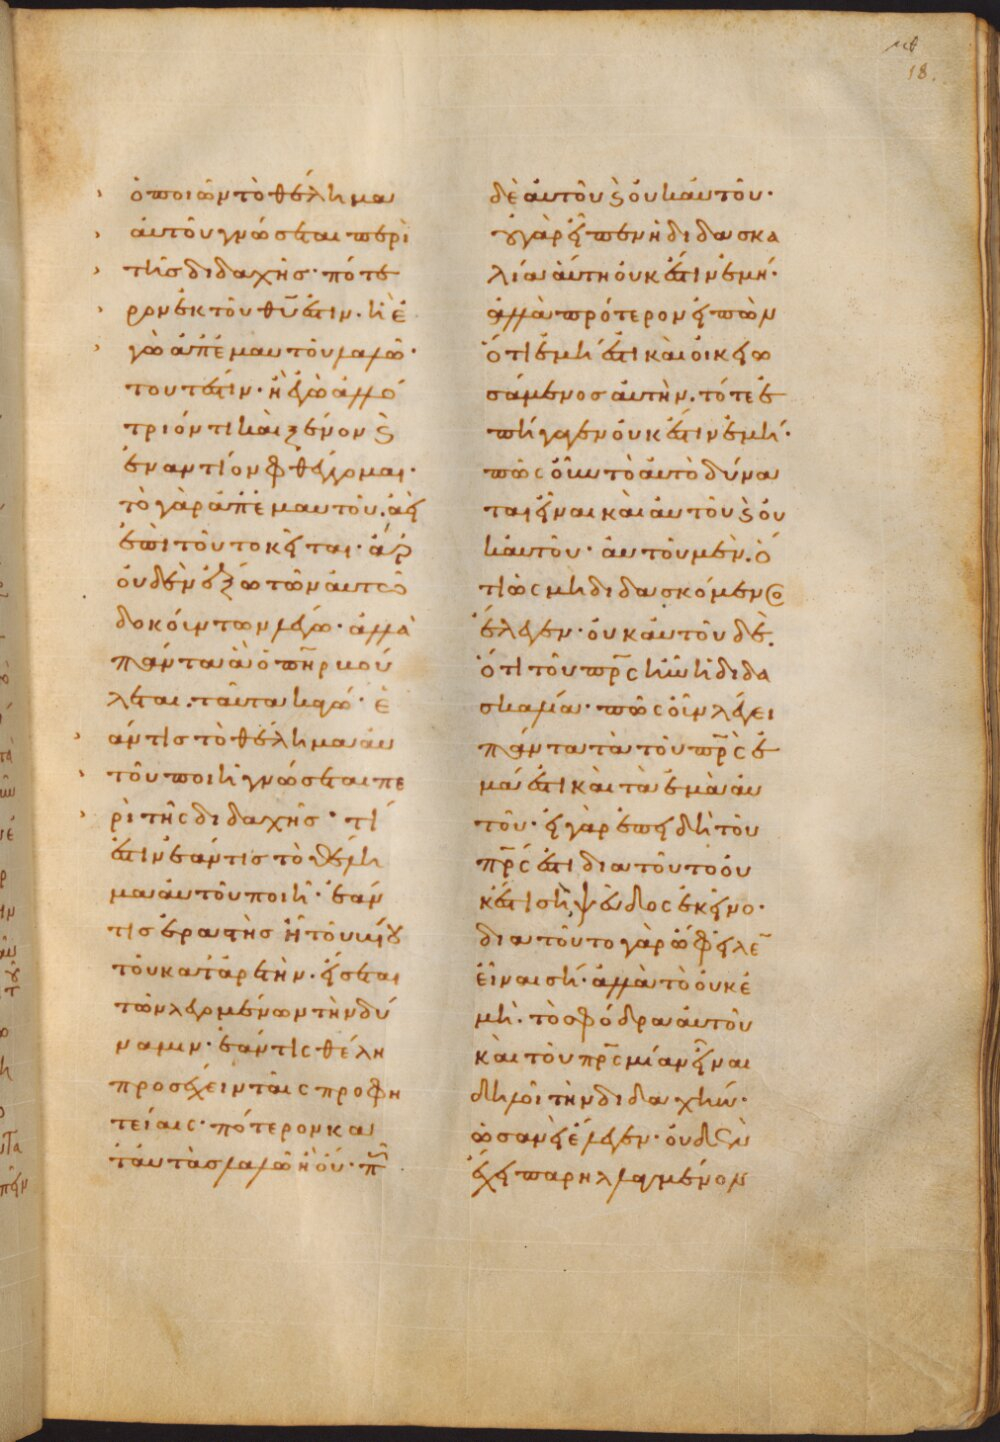 μθ
18.
ὁ ποιῶν τὸ θέλημα
αὐτοῦ γνώσεται περὶ
τῆς διδαχῆς· πότε
ρον ἐκ τοῦ θ̅υ̅ ἐστιν. ἢ ἐ
γὼ ἀπ' ἐμαυτοῦ λαλῶ·
τουτέστιν· ἢ ἐγὼ ἀλλό
τριόν τι καὶ ξένον ϗ
ἐναντίον φθέγγομαι·
τὸ γὰρ ἀπ' ἐμαυτοῦ. ἀεὶ
ἐπὶ τοῦτο κεῖται· ἆρ
οὐδὲν ἔξω τῶν αὐτῶ
δοκούντων λέγω· ἀλλὰ
πάντα ἃ ὁ π̅η̅ρ μου
λεται. ταῦτα κἀγώ· ἐ
άν τις τὸ θέλημα αὐ
τοῦ ποιῇ γνώσεται πε
ρὶ τῆς διδαχῆς· τί
ἐστιν ἐάν τις τὸ θέλη
μα αὐτοῦ ποιῇ· ἐάν
τις ἐραστὴς ᾖ τοῦ βίου
τοῦ κατ' ἀρετήν. εἴσεται
τῶν λεγομένων τὴν δύ
ναμιν· ἐάν τις θέλη
προσέχειν ταῖς προφη
τείαις· πότερον κα
τ' αὐτὰς λαλῶ ἢ οὔ· π̅
δὲ αὐτοῦ ϗ οὐκ αὐτοῦ·
εἰ γὰρ εἶπεν ἡ διδασκα
λία αὕτη οὐκ ἔστιν ἐμή·
ἀλλὰ πρότερον εἰπὼν
ὅτι ἐμή ἐστι καὶ οἰκειω
σάμενος αὐτὴν. τότε ἐ
πήγαγεν οὐκ ἔστιν ἐμή·
πῶς οὖν τὸ αὐτὸ δύνα
ται εἶναι καὶ αὐτοῦ ϗ οὐ
κ αὐτοῦ· αὐτοῦ μὲν. ὅ
τι ὡς μὴ διδασκόμενο
ἔλεγεν· οὐκ αὐτοῦ δὲ.
ὅτι τοῦ π̅ρ̅ς ἦν ἡ διδα
σκαλία· πῶς οὖν λέγει
πάντα τὰ τοῦ π̅ρ̅ς ἐ
μά ἐστι καὶ τὰ ἐμὰ αὐ
τοῦ· εἰ γὰρ ἐπειδὴ τοῦ
π̅ρ̅ς ἐστι διὰ τοῦτο οὐ
κ ἔστι σὴ, ψεῦδος ἐκεῖνο·
διὰ τοῦτο γὰρ ὤφειλε̅
εἶναι σή· ἀλλὰ τὸ οὐκ ἐ
μὴ. τὸ σφόδρα αὐτοῦ
καὶ τοῦ π̅ρ̅ς μίαν εἶναι
δηλοῖ τὴν διδαχήν·
ὡσανεὶ ἔλεγεν· οὐδὲν
ἔχει παρηλλαγμένον